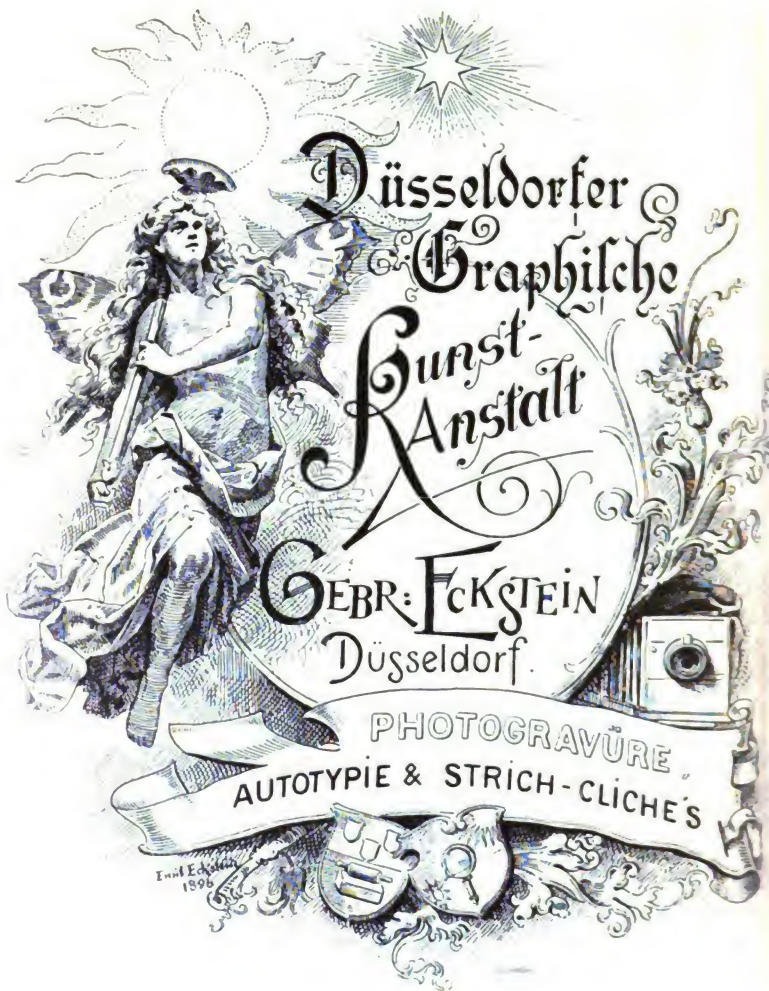 Düsseldorfer
Graphiſche
Kunst-
Anstalt
GEBR: ECKSTEIN
Düsseldorf.
PHOTOGRAVÜRE,
AUTOTYPIE & STRICH-CLICHÉS
Emil Eckstein
1896